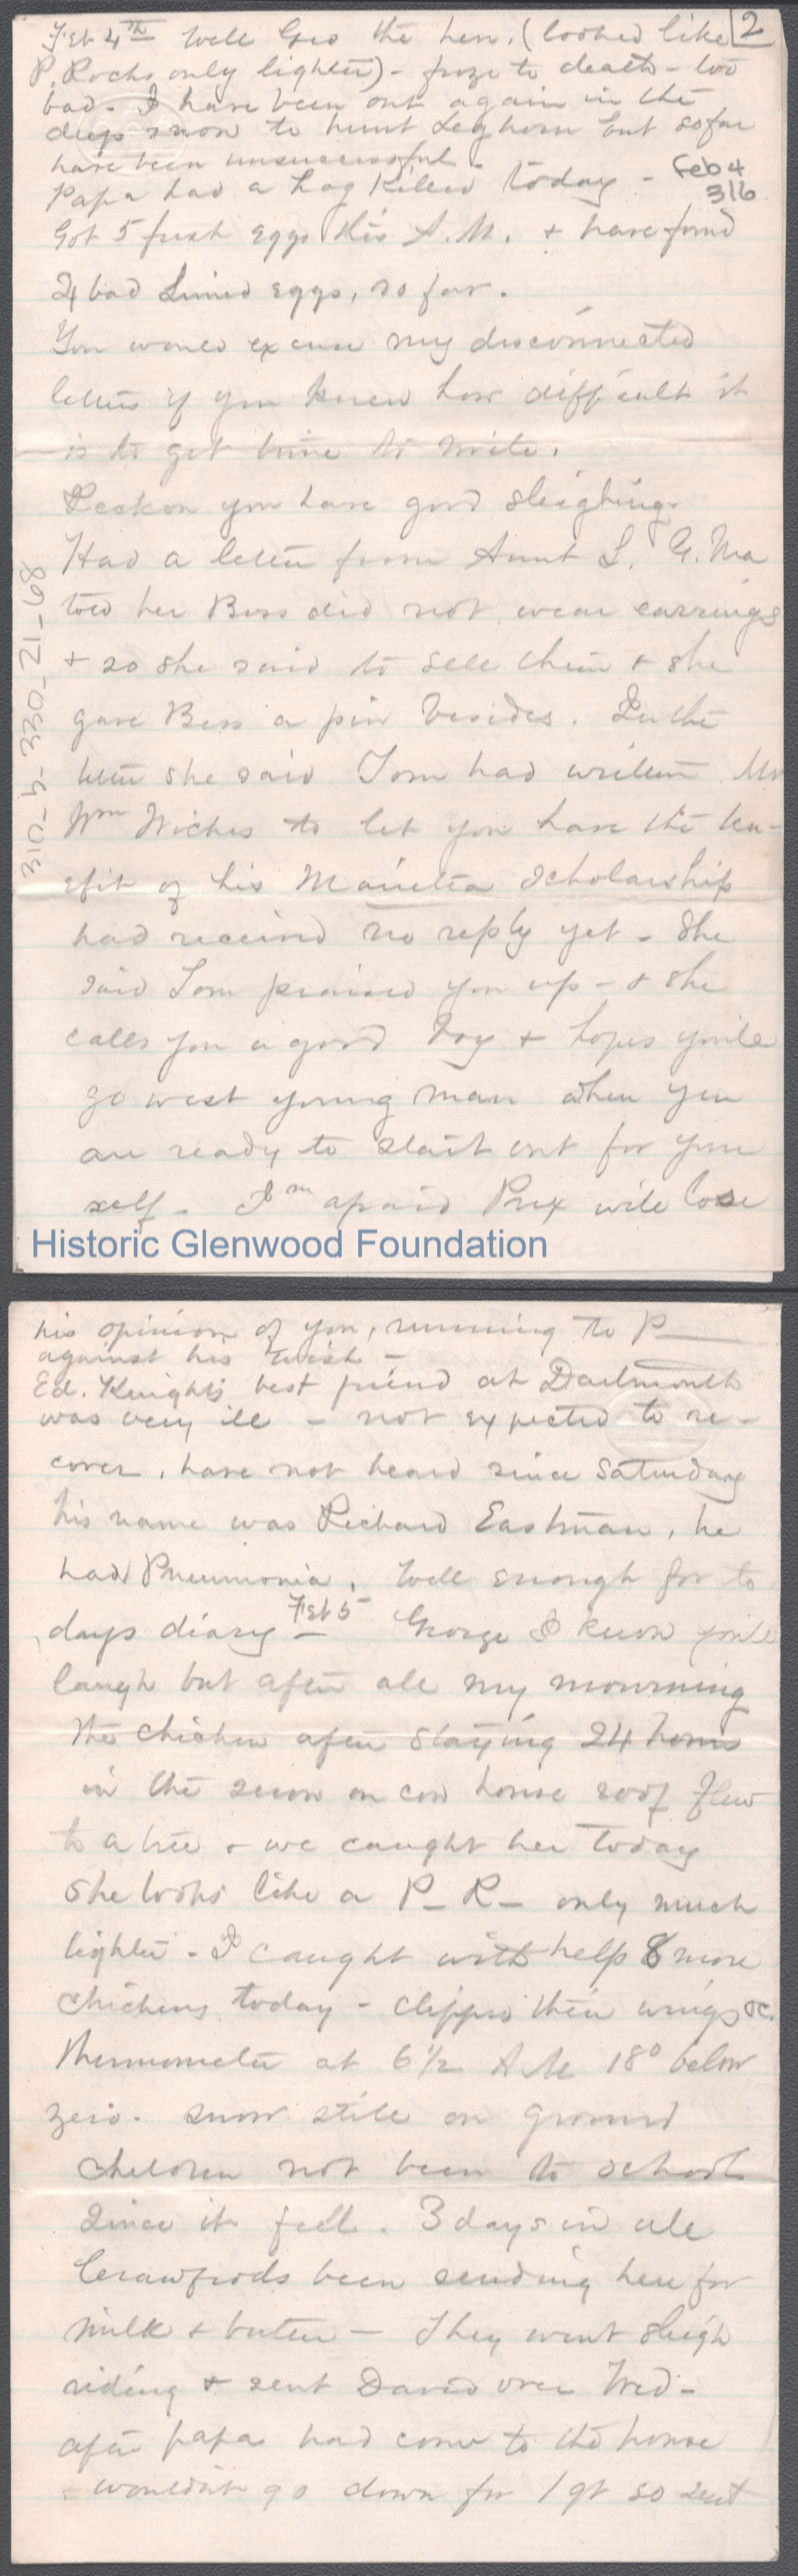 2
Feb 4th Well Geo the hen, (looked like
P. Rocks only lighter) - froze to death - too
bad. I have been out again in the
deep snow to hunt Leghorn but so far
have been unsuccessful -
Papa had a hog killed today -
Feb 4
316
Got 5 fresh eggs this A.M. + have found
24 bad Limed eggs, so far.
You would excuse my disconnected
letters if you knew how difficult it
is to get time to write.
Reckon you have good sleighing.
Had a letter from Aunt L. G. Ma
told her Bess did not wear earrings
+ so she said to sell them + she
gave Bess a pin besides. In the
letter she said Tom had written Mr
Wm Wiches to let you have the ben-
efit of his Marietta Scholarship
had received no reply yet - She
said Tom praised you up - + she
calls you a good boy + hopes you'le
go west young man when you
are ready to start out for your
self - I'm afraid Prex will lose
310-h-330-21-68
Historic Glenwood Foundation
his opinion of you, running to P——
against his wish -
Ed. Knight's best friend at Dartmouth
was very ill - not expected to re-
cover, have not heard since Saturday
his name was Richard Eastman, he
had Pneumonia. Well enough for to
days diary - Feb 5 George I know you'le
laugh but after all my mourning
the chicken after staying 24 hours
in the snow on cow house roof flew
to a tree + we caught her today
She looks like a P- R- only much
lighter - I caught with help 8 more
chickens today - clipped their wings &c.
Thermometer at 6 1/2 A M 18° below
zero. snow still on ground
Children not been to school
since it fell. 3 days in all
Crawfords been sending here for
milk + butter - They went sleigh
riding + sent David over Wed -
after papa had come to the house
wouldn't go down for 1 qt so sent